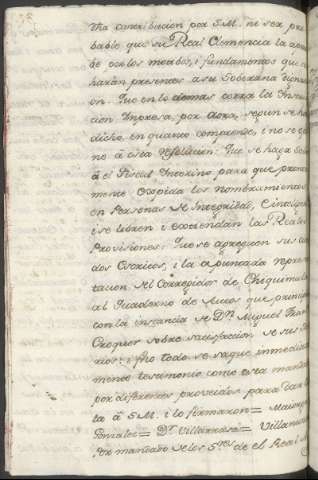 tra contribucion por S.M. ni ser pro
bable que su Real Clemencia la aprue
be oidos los medios, i fundamentos que se
harán presentes a su Soberana dignaci
on. Que en lo demas corra la Instruc
cion Impresa, por aora, segun se ha
dicho en quanto comprende, i no se opo
ne á esta resolucion: Que se haga saber
á el Fiscal Interino para que pronta
mente expida los nombramientos
en Personas de integridad,
i se libren i extiendan las Reales
Provisiones: Que se agreguen sus ci
dos Escritos, i la apuntada represen
tacion del Corregidor de Chiquimula
al Quaderno de Autos que principia
con la instancia de Dn. Miguel Fran.
Croquer sobre satisfaccion de sus
rios: i fho todo se saque immediata
mente testimonio como está mandado
por diferentes proveidos para dar cuen
ta á S.M. i lo firmaron=
Gonzalez= Dr. Villarrasa= Villanueva
Por mandado de los Sres. de el Real